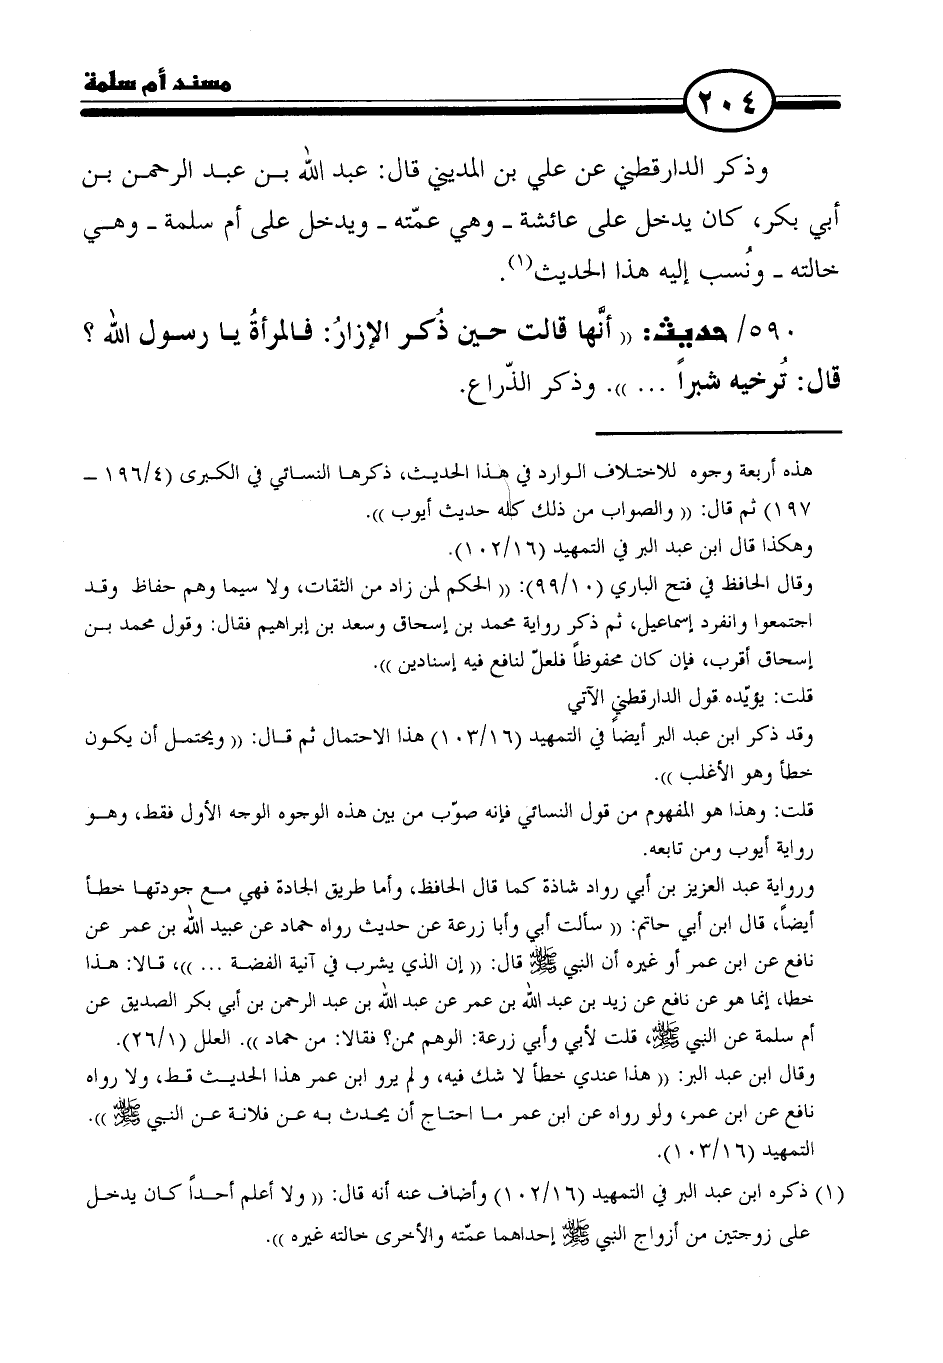 مسند أم سلمة
٢٠٤
وذكر الدارقطني عن علي بن المديني قال: عبد الله بن عبد الرحمن بن
أبي بكر، كان يدخل على عائشة ـ وهي عمّته ـ ويدخل على أم سلمة ـ وهي
خالته ـ ونُسب إليه هذا الحديث(١).
٥٩٠/ حديث: (( أنَّها قالت حين ذُكر الإزارُ: فالمرأةُ يا رسول الله ؟
قال: تُرخيه شبراً ... )). وذكر الذّراع.
هذه أربعة وجوه للاختلاف الوارد في هذا الحديث، ذكرها النسائي في الكبرى (١٩٦/٤ ـ
١٩٧) ثم قال: (( والصواب من ذلك كله حديث أيوب )).
وهكذا قال ابن عبد البر في التمهيد (١٠٢/١٦).
وقال الحافظ في فتح الباري (٩٩/١٠): (( الحكم لمن زاد من الثقات، ولا سيما وهم حفاظ وقد
اجتمعوا وانفرد إسماعيل، ثم ذكر رواية محمد بن إسحاق وسعد بن إبراهيم فقال: وقول محمد بن
إسحاق أقرب، فإن كان محفوظاً فلعلّ لنافع فيه إسنادين )).
قلت: يؤيّده قول الدارقطني الآتي
وقد ذكر ابن عبد البر أيضاً في التمهيد (١٠٣/١٦) هذا الاحتمال ثم قال: (( ويحتمل أن يكون
خطأ وهو الأغلب )).
قلت: وهذا هو المفهوم من قول النسائي فإنه صوّب من بين هذه الوجوه الوجه الأول فقط، وهو
رواية أيوب ومن تابعه.
ورواية عبد العزيز بن أبي رواد شاذة كما قال الحافظ، وأما طريق الجادة فهي مع جودتها خطأ
أيضاً، قال ابن أبي حاتم: (( سألت أبي وأبا زرعة عن حديث رواه حماد عن عبيد الله بن عمر عن
نافع عن ابن عمر أو غيره أن النبي ﷺ قال: (( إن الذي يشرب في آنية الفضة ... ))، قالا: هذا
خطا، إنما هو عن نافع عن زيد بن عبد الله بن عمر عن عبد الله بن عبد الرحمن بن أبي بكر الصديق عن
أم سلمة عن النبي ﷺ، قلت لأبي وأبي زرعة: الوهم ممن؟ فقالا: من حماد )). العلل (٢٦/١).
وقال ابن عبد البر: (( هذا عندي خطأ لا شك فيه، ولم يرو ابن عمر هذا الحديث قط، ولا رواه
نافع عن ابن عمر، ولو رواه عن ابن عمر ما احتاج أن يحدث به عن فلانة عن النبي ﷺ )).
التمهيد (١٠٣/١٦).
(١) ذكره ابن عبد البر في التمهيد (١٠٢/١٦) وأضاف عنه أنه قال: (( ولا أعلم أحداً كان يدخل
على زوجتين من أزواج النبي ﷺ إحداهما عمّته والأخرى خالته غيره )).